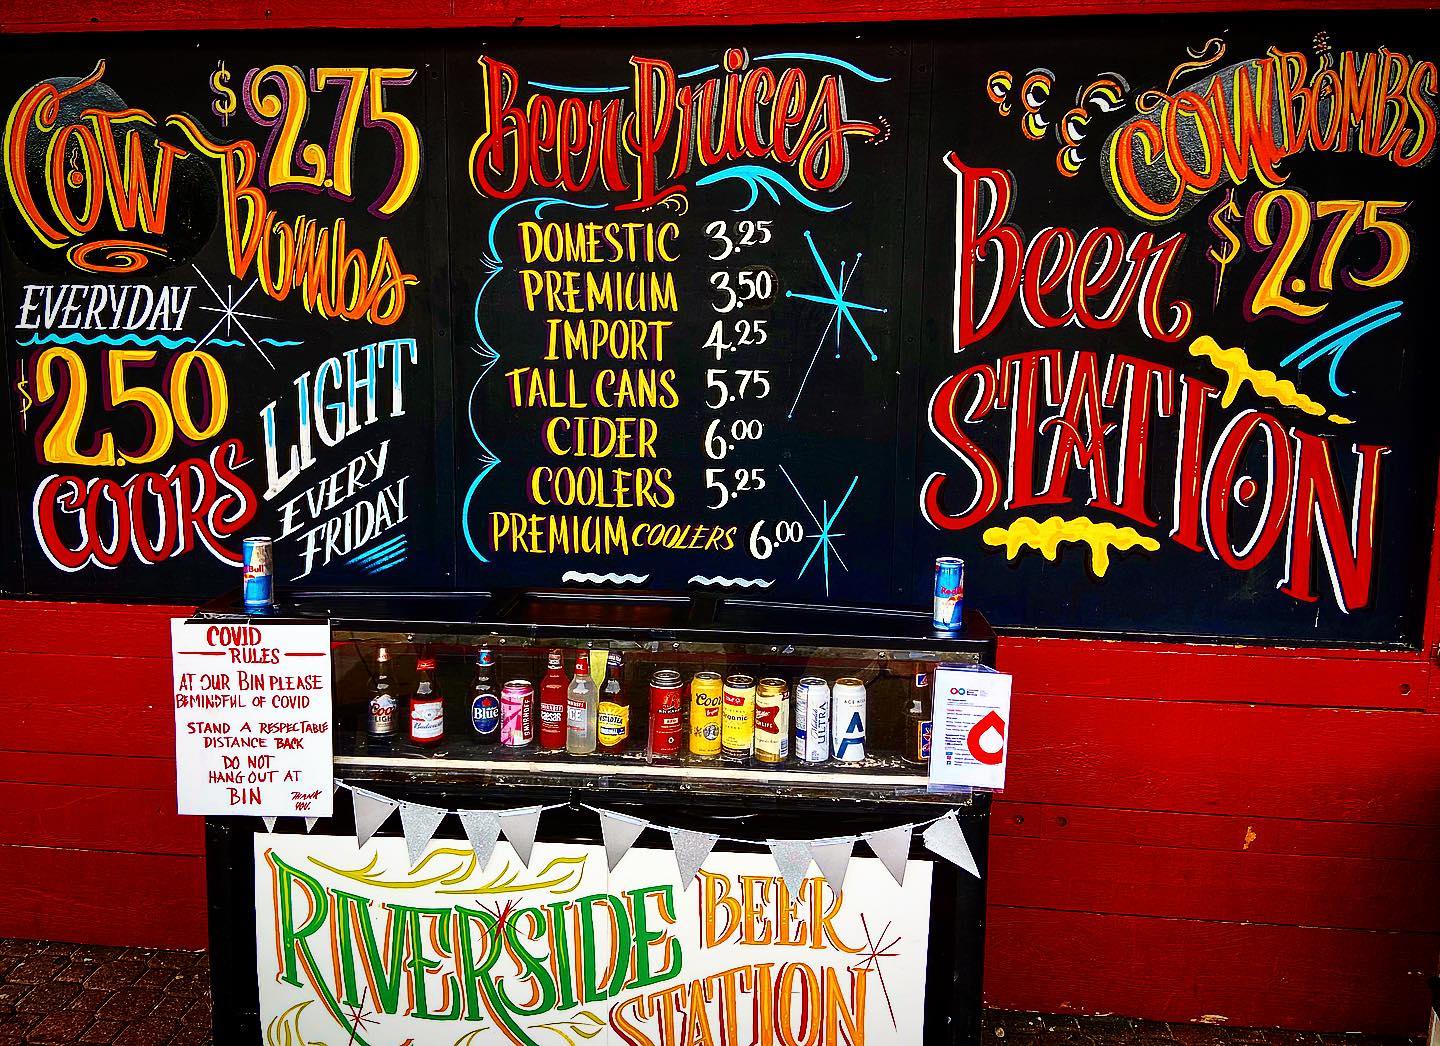 COW BOMBS
$2.75
EVERYDAY
$2.50
COORS
LIGHT
EVERY
FRIDAY
Beer Prices
DOMESTIC 3.25
PREMIUM 3.50
IMPORT 4.25
TALL CANS 5.75
CIDER 6.00
COOLERS 5.25
PREMIUM COOLERS 6.00
COWBOMBS
$2.75
Beer
STATION
Red Bull
COVID
RULES
AT OUR BIN PLEASE
BE MINDFUL OF COVID
STAND A RESPECTABLE
DISTANCE BACK
DO NOT
HANG OUT AT
BIN
THANK
YOU.
Blue
SMIRNOFF
CAESAR
ICE
Coors
Organic
HIGH LIFE
ULTRA
A
RIVERSIDE BEER
STATION